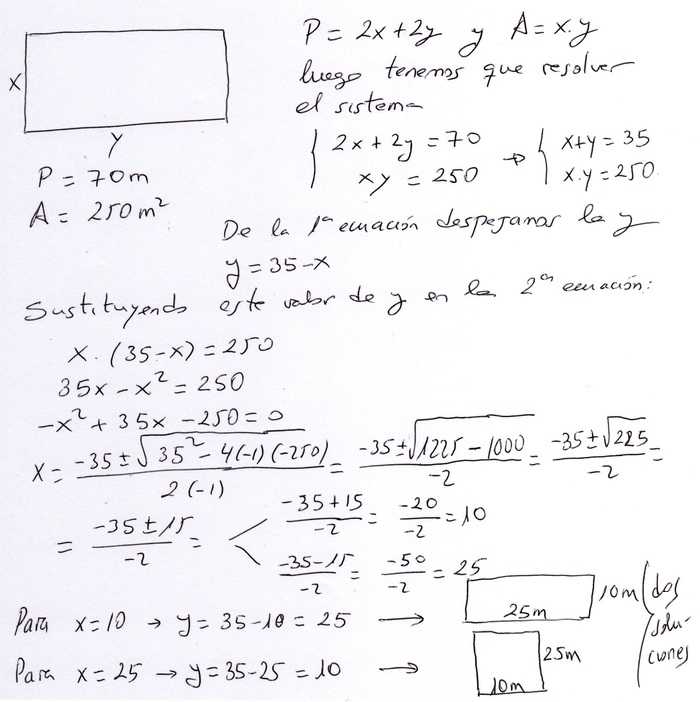 P = 2x+2y y A = x.y
luego tenemos que resolver
el sistema
x
y
P = 70m
A = 250m²
{ 2x + 2y = 70
xy = 250
→ { x+y = 35
x.y = 250
De la 1ª ecuación despejamos la y
y = 35-x
Sustituyendo este valor de y en la 2ª ecuación:
x . (35-x) = 250
35x - x² = 250
-x² + 35x - 250 = 0
x = (-35 ± √(35² - 4(-1)(-250)))/(2(-1)) = (-35 ± √(1225 - 1000))/(-2) = (-35 ± √225)/(-2) =
= (-35 ± 15)/(-2) =
(-35+15)/(-2) = (-20)/(-2) = 10
(-35-15)/(-2) = (-50)/(-2) = 25
Para x=10 → y = 35-10 = 25 →
25m
10m
Para x=25 → y = 35-25 = 10 →
25m
10m
(dos
solu-
ciones